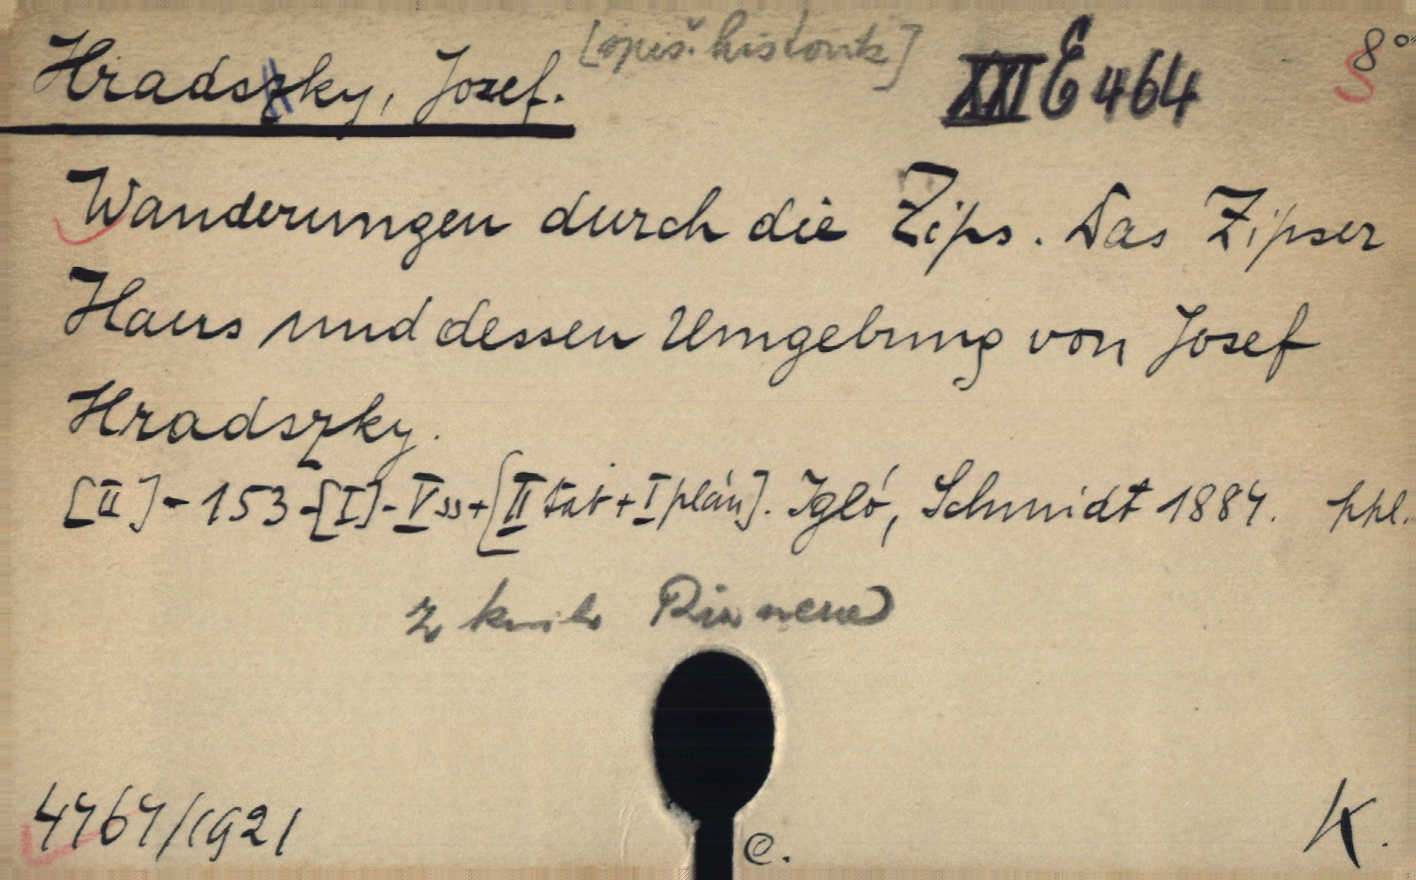 Hradszky, Josef. XXI E 464 8°
Wanderungen durch die Zips. Das Zipser
Haus und dessen Umgebung von Josef
Hradszky.
[II]-153-[I]-V ss+[II tab+I plán]. Igló, Schmidt 1884. ppl.
z knih
4764/1921 e. K.